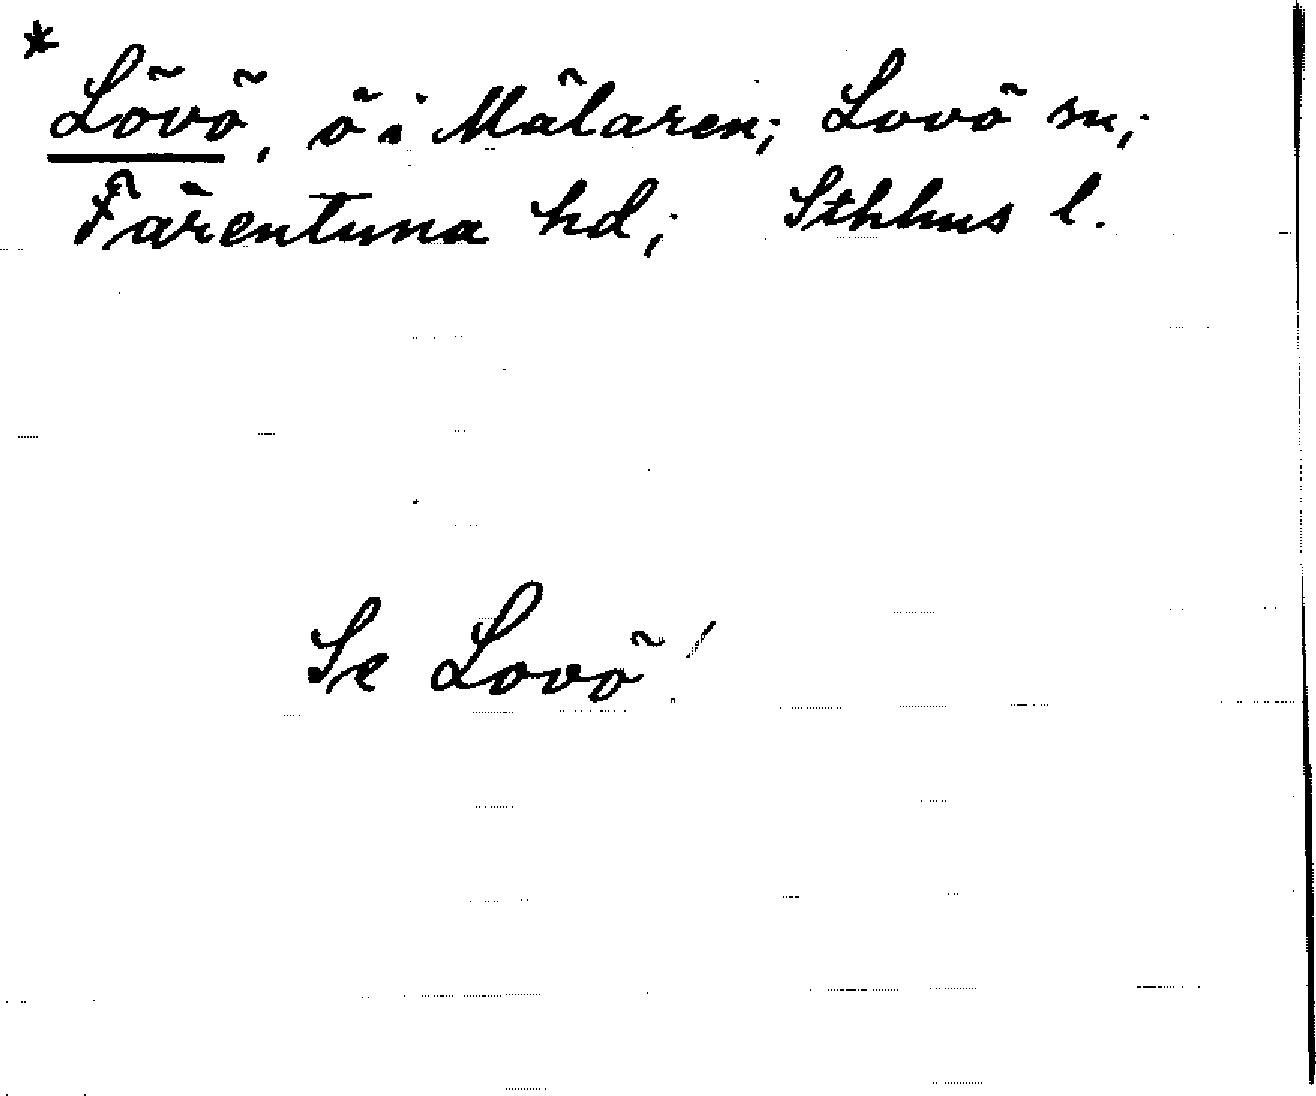 * Lövö, ö i Mälaren; Lovö sn;
Färentuna hd; Sthlms l.
Se Lovö!